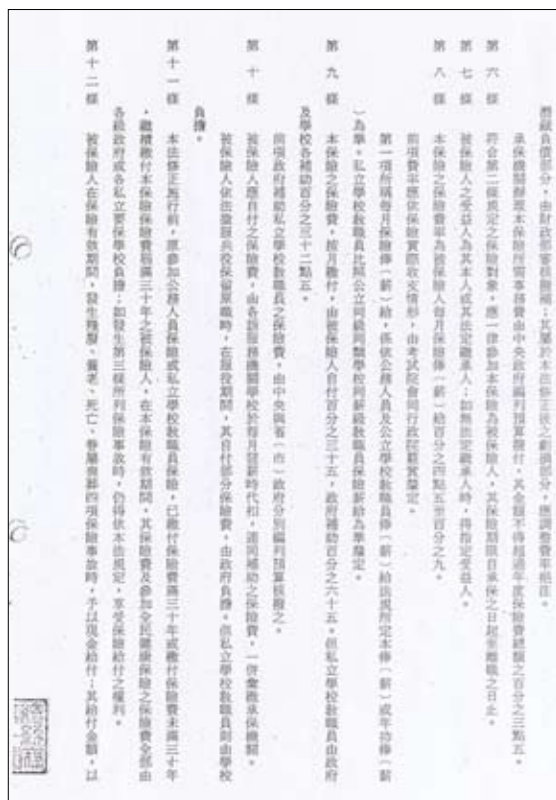 虧損負債部分，由財政部審核撥補；其屬於本法修正後之虧損部分，應調整費率挹注。
承保機關辦理本保險所需事務費由中央政府編列預算撥付，其金額不得超過年度保險費總額之百分之三點五。
第六條 符合第二條規定之保險對象，應一律參加本保險為被保險人，其保險期限自承保之日起至離職之日止。
第七條 被保險人之受益人為其本人或其法定繼承人；如無法定繼承人時，得指定受益人。
第八條 本保險之保險費率為被保險人每月保險俸（薪）給百分之四點五至百分之九。
前項費率應依保險實際收支情形，由考試院會同行政院覈實釐定。
第一項所稱每月保險俸（薪）給，係依公務人員及公立學校教職員俸（薪）給法規所定本俸（薪）或年功俸（薪
）為準。私立學校教職員比照公立同級同類學校同薪級教職員保險薪給為準釐定。
第九條 本保險之保險費，按月繳付，由被保險人自付百分之三十五，政府補助百分之六十五。但私立學校教職員由政府
及學校各補助百分之三十二點五。
前項政府補助私立學校教職員之保險費，由中央與省（市）政府分別編列預算核撥之。
第十條 被保險人應自付之保險費，由各該服務機關學校於每月發薪時代扣，連同補助之保險費，一併彙繳承保機關。
被保險人依法徵服兵役保留原職時，在服役期間，其自付部分保險費，由政府負擔。但私立學校教職員則由學校
負擔。
第十一條 本法修正施行前，原參加公務人員保險或私立學校教職員保險，已繳付保險費滿三十年或繳付保險費未滿三十年
，繼續繳付本保險保險費屆滿三十年之被保險人，在本保險有效期間，其保險費及參加全民健康保險之保險費全部由
各級政府或各私立要保學校負擔；如發生第三條所列保險事故時，仍得依本法規定，享受保險給付之權利。
第十二條 被保險人在保險有效期間，發生殘廢、養老、死亡、眷屬喪葬四項保險事故時，予以現金給付；其給付金額，以